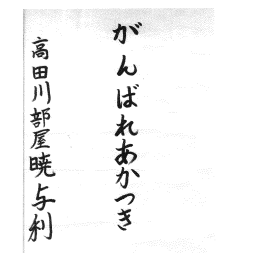 がんばれあかつき
高田川部屋暁与利